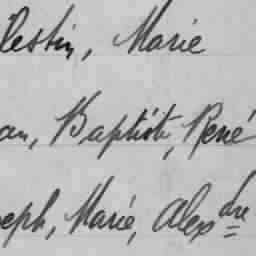 lestin, Marie
an, Baptiste, René
seph, Marie, Alexdre